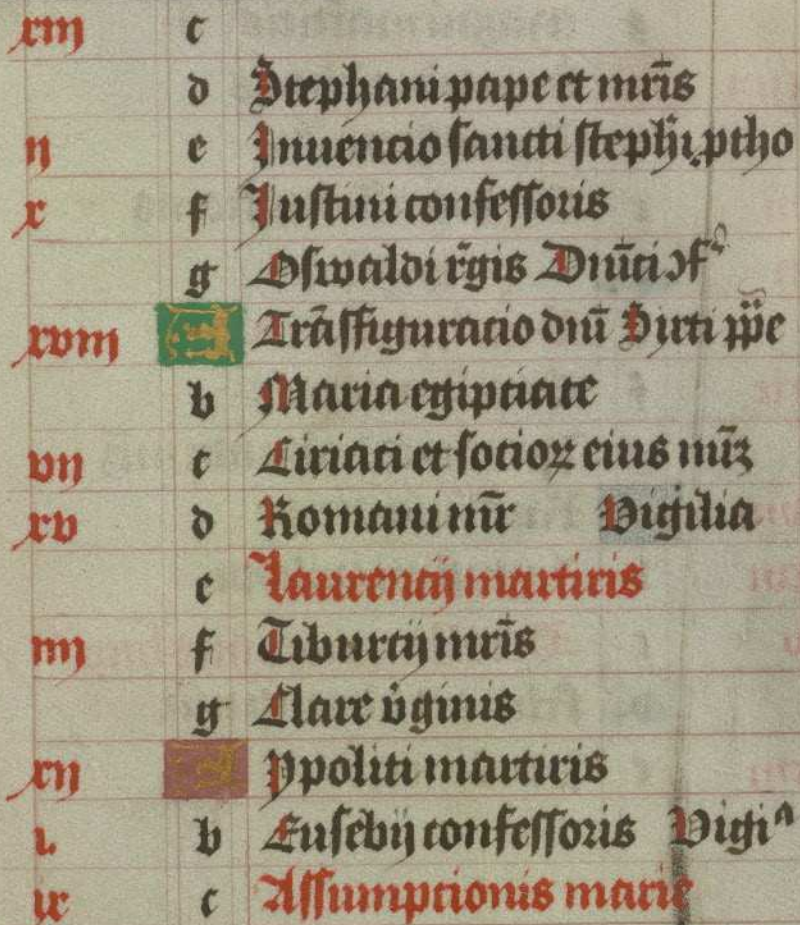 xiij c
d Stephani pape et mr̄is
ij e Inuencio sancti steph̄i ptho
x f Iustini confessoris
g Oswaldi r̄gis Dn̄ici ɔf
xviij A Trāsfiguracio dn̄i Sixti pp̄e
b Maria egipciace
vij c Ciriaci et socioꝝ eius mr̄ꝫ
xv d Romani mr̄ Vigilia
e Laurencij martiris
iiij f Tiburcij mr̄is
g Clare v̄ginis
xij A Ypoliti martiris
i. b Eusebij confessoris Vigiᵃ
ix c Assumpcionis marie